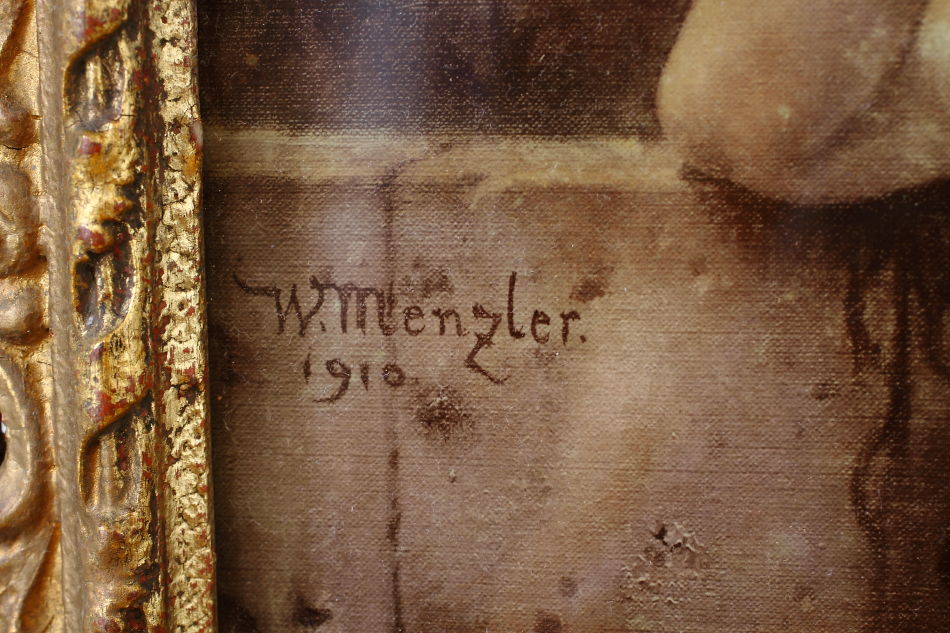 W. Menzler.
1910.